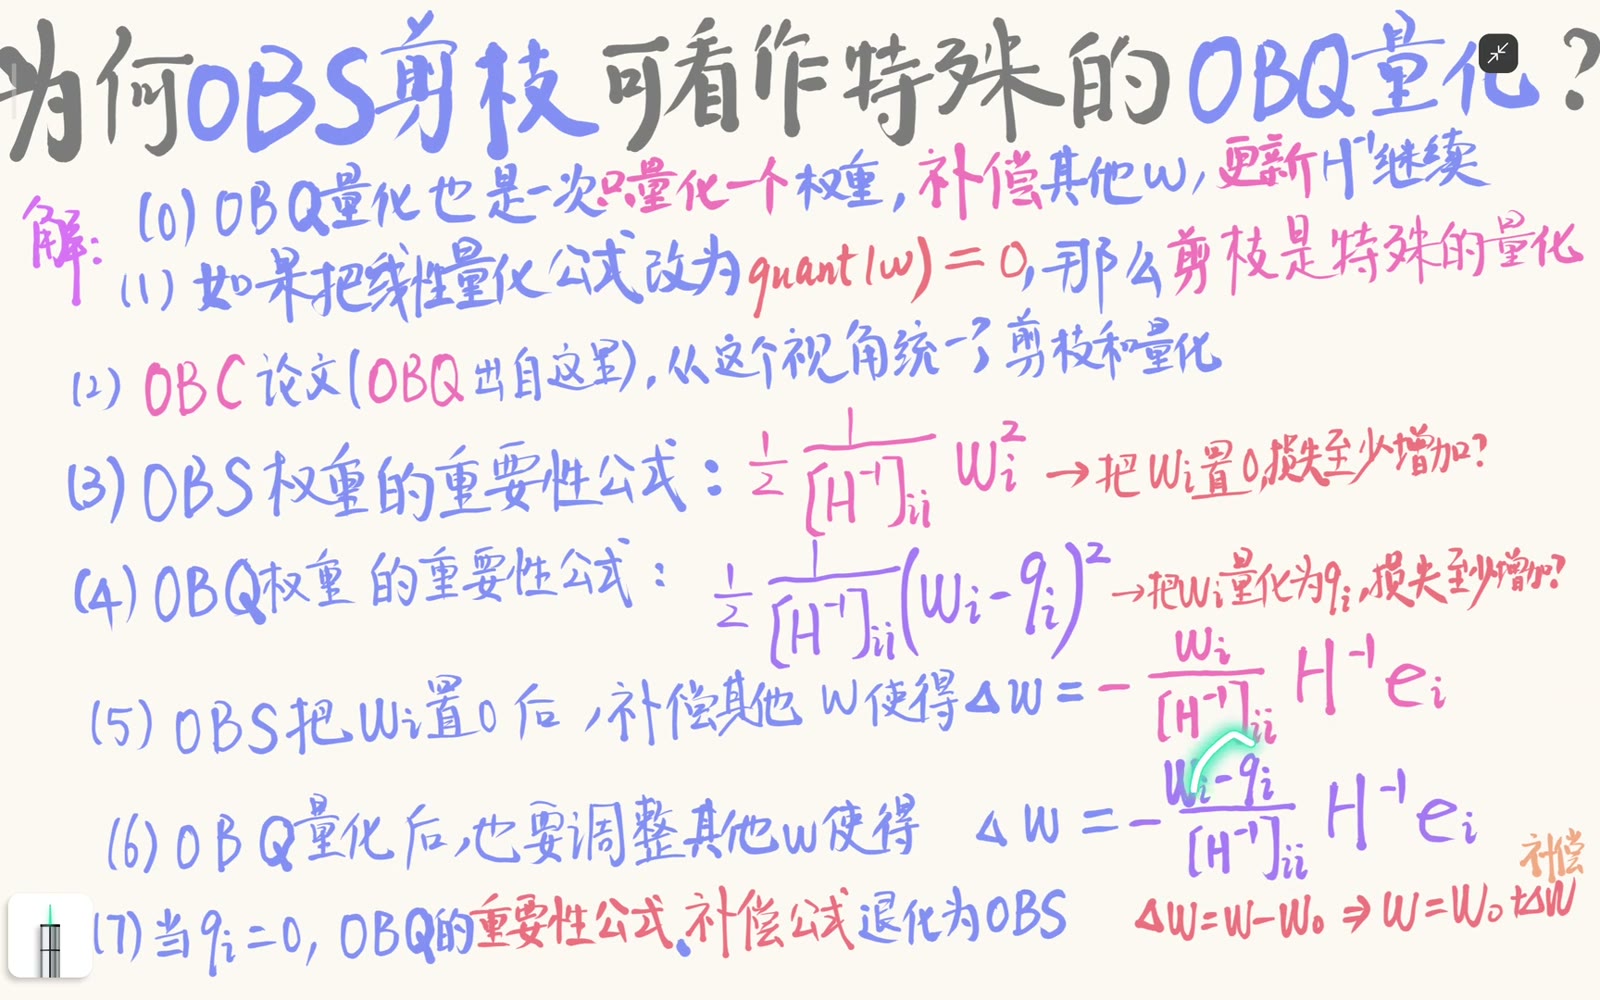 为何OBS剪枝可看作特殊的OBQ量化?
解: (0) OBQ量化也是一次只量化一个权重, 补偿其他w, 更新H⁻¹继续
(1) 如果把线性量化公式改为quant(w) = 0, 那么剪枝是特殊的量化
(2) OBC论文(OBQ出自这里), 从这个视角统一了剪枝和量化
(3) OBS权重的重要性公式: 1/2 1/[H⁻¹]ii Wi² → 把Wi置0,损失至少增加?
(4) OBQ权重的重要性公式: 1/2 1/[H⁻¹]ii (Wi-qi)² → 把Wi量化为qi,损失至少增加?
(5) OBS把Wi置0后, 补偿其他W使得ΔW = - Wi/[H⁻¹]ii H⁻¹ei
(6) OBQ量化后,也要调整其他w使得 ΔW = - Wi-qi/[H⁻¹]ii H⁻¹ei
补偿
(7) 当qi=0, OBQ的重要性公式、补偿公式退化为OBS ΔW=W-W₀ ⇒ W=W₀+ΔW